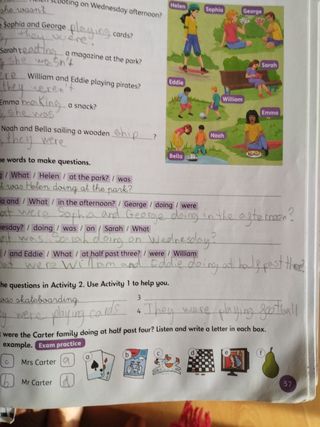 Helen scooting on Wednesday afternoon?
she wasn't
Helen
Sophia
George
Sophia and George playing cards?
they were.
Sarah reading a magazine at the park?
she wasn't
Sarah
William and Eddie playing pirates?
they weren't
Eddie
William
Emma making a snack?
she was
Emma
Noah and Bella sailing a wooden ship?
they were
Noah
Bella
words to make questions.
/ What / Helen / at the park? / was
was Helen doing at the park?
and / What / in the afternoon? / George / doing / were
were Sophia and George doing in the afternoon?
/ doing / was / on / Sarah / What
was Sarah doing on Wednesday?
/ and Eddie / What / at half past three? / were / William
were William and Eddie doing at half past three?
the questions in Activity 2. Use Activity 1 to help you.
was skateboarding
3
were playing cards
4 They were playing football
were the Carter family doing at half past four? Listen and write a letter in each box.
example. Exam practice
c Mrs Carter g
h Mr Carter d
a
b
c
d
e
f
57